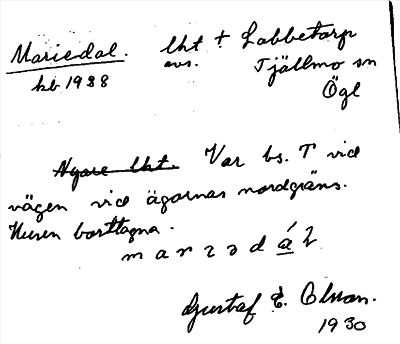 Mariedal. lht t Labbetorp
avs. Tjällmo sn
kb 1988 Ögl
Nyare lht. Var bs. T vid
vägen vid ägornas nordgräns.
Husen borttagna.
Gustaf E. Olson.
1930